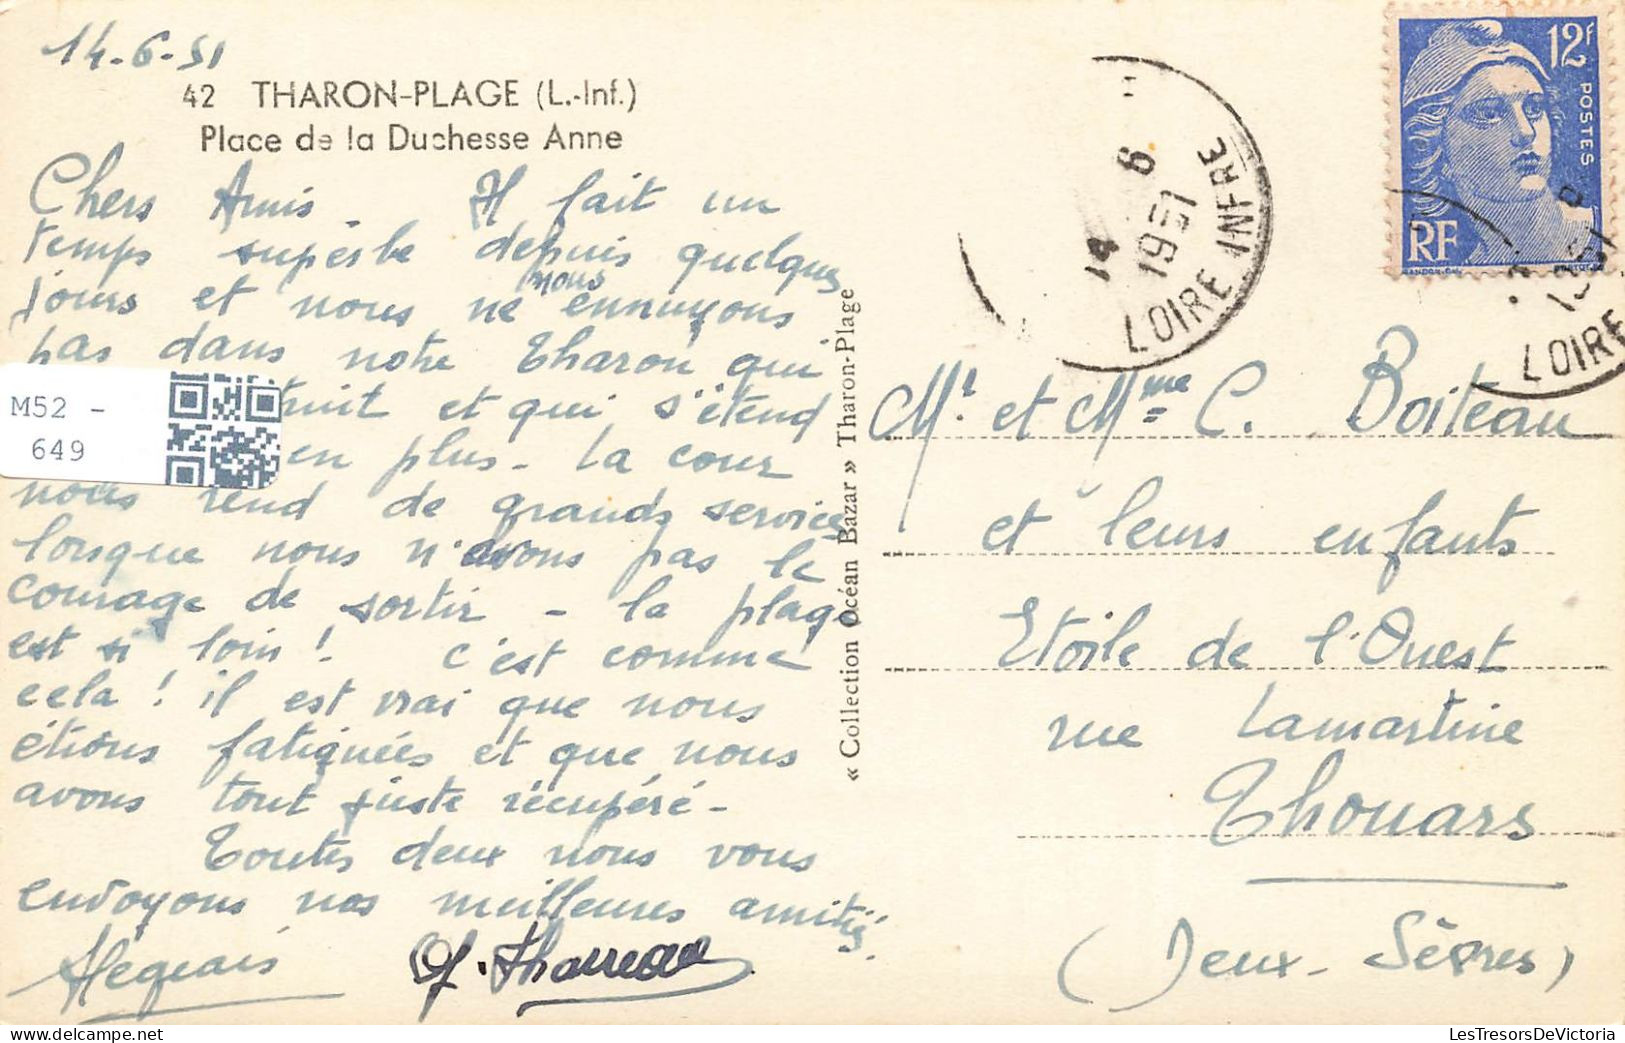 14-6-51
42 THARON-PLAGE (L.-Inf.)
Place de la Duchesse Anne
Chers Amis _ Il fait un
temps superbe depuis quelques
jours et nous ne nous ennuyons
pas dans notre Tharon qui
et qui s'étend
en plus - La cour
nous rend de grands services
lorsque nous n'avons pas le
courage de sortir - la plage
est si loin ! c'est comme
cela ! il est vrai que nous
étions fatiguées et que nous
avons tout juste récupéré -
Toutes deux nous vous
envoyons nos meilleures amitiés.
M52 -
649
« Collection Océan Bazar » Tharon-Plage
14 6
1951
LOIRE INFRE
12f
POSTES
RF
1951
LOIRE
Mr. et Mme C. Boiteau
et leurs enfants
Etoile de l'Ouest
rue Lamartine
Thouars
(Deux-Sèvres)
LesTresorsDeVictoria.com